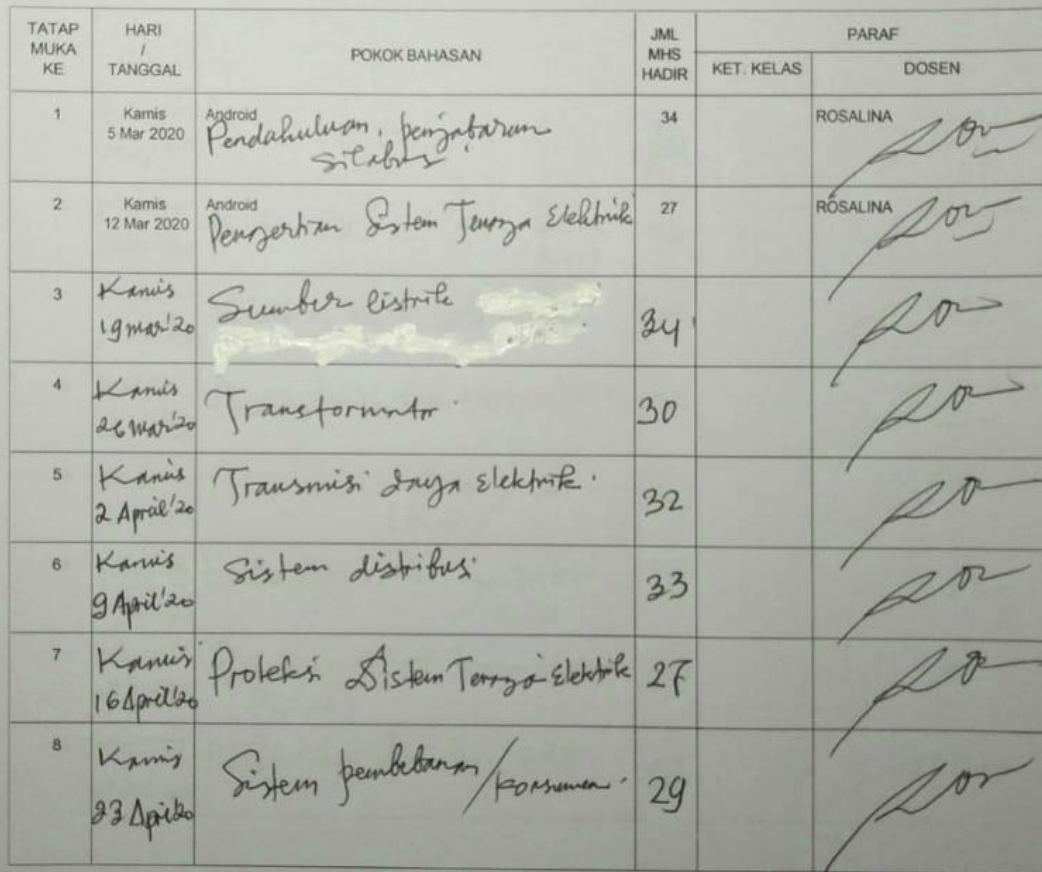 TATAP MUKA KE
HARI / TANGGAL
POKOK BAHASAN
JML MHS HADIR
PARAF
KET. KELAS
DOSEN
1
Kamis
5 Mar 2020
Android
Pendahuluan, penjabaran
silabus
34
ROSALINA
2
Kamis
12 Mar 2020
Android
Pengertian Sistem Tenaga Elektrik
27
ROSALINA
3
Kamis
19 mar'20
Sumber listrik
34
4
Kamis
26 Mar'20
Transformator
30
5
Kamis
2 April'20
Transmisi daya Elektrik.
32
6
Kamis
9 April'20
Sistem distribusi
33
7
Kamis
16 April'20
Proteksi Sistem Tenaga Elektrik
27
8
Kamis
23 April'20
Sistem pembebanan/konsumen.
29